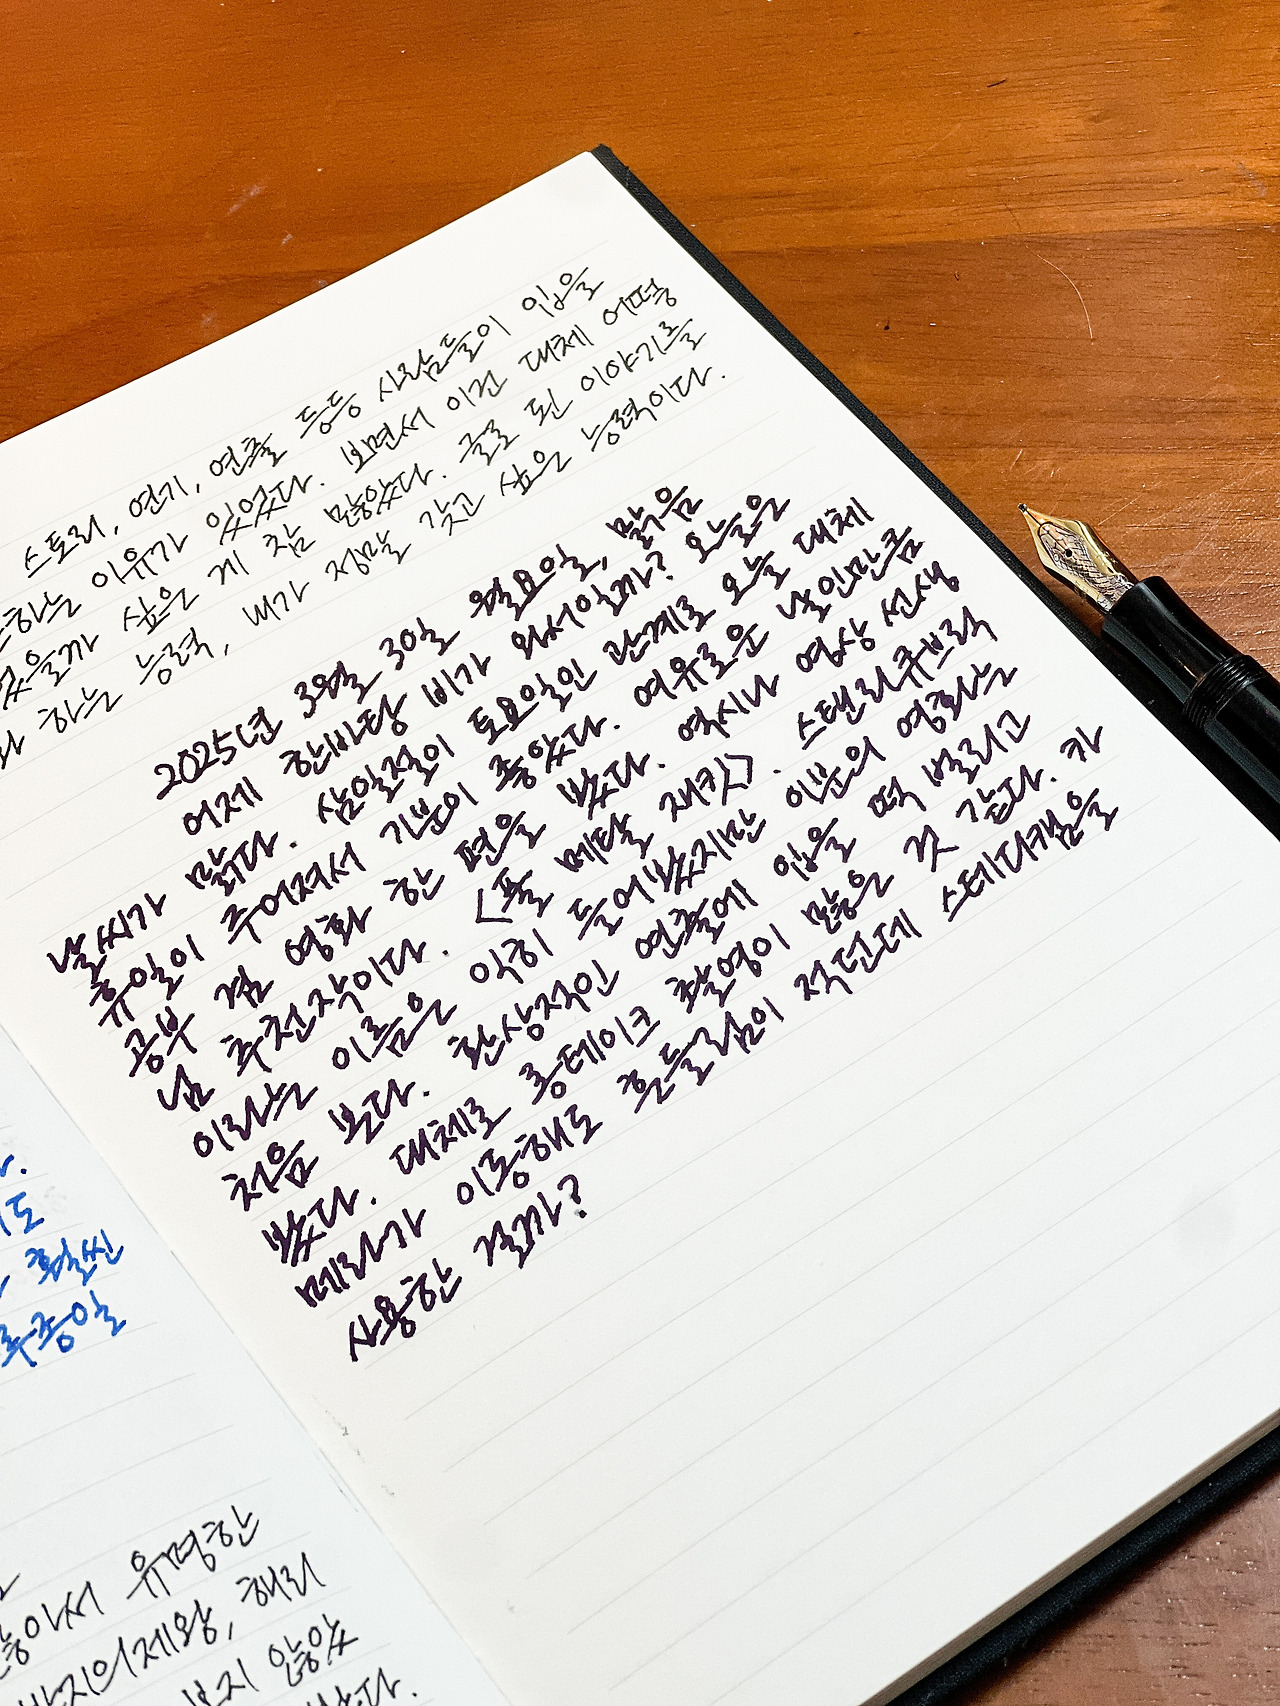 스토리, 연기, 연출 등등 사람들이 입을
하는 이유가 있었다. 보면서 이건 대체 어떻
었을까 싶은 게 참 많았다. 글로 된 이야기를
하는 능력, 내가 정말 갖고 싶은 능력이다.
2025년 3월 30일 월요일, 맑음
어제 한바탕 비가 와서일까? 오늘은
날씨가 맑다. 삼일절이 토요일인 관계로 오늘 대체
휴일이 주어져서 기분이 좋았다. 여유로운 날인만큼
공부 겸 영화 한 편을 봤다. 역시나 영상 선생
님 추천작이다. <풀 메탈 재킷>. 스탠리큐브릭
이라는 이름은 익히 들어봤지만 이분의 영화는
처음 본다. 환상적인 연출에 입을 떡 벌리고
봤다. 대체로 롱테이크 촬영이 많은 것 같다. 카
메라가 이동해도 흔들림이 적던데 스테디캠을
사용한 걸까?
도
훨씬
하루종일
유명한
반지의제왕, 해리
보지 않았